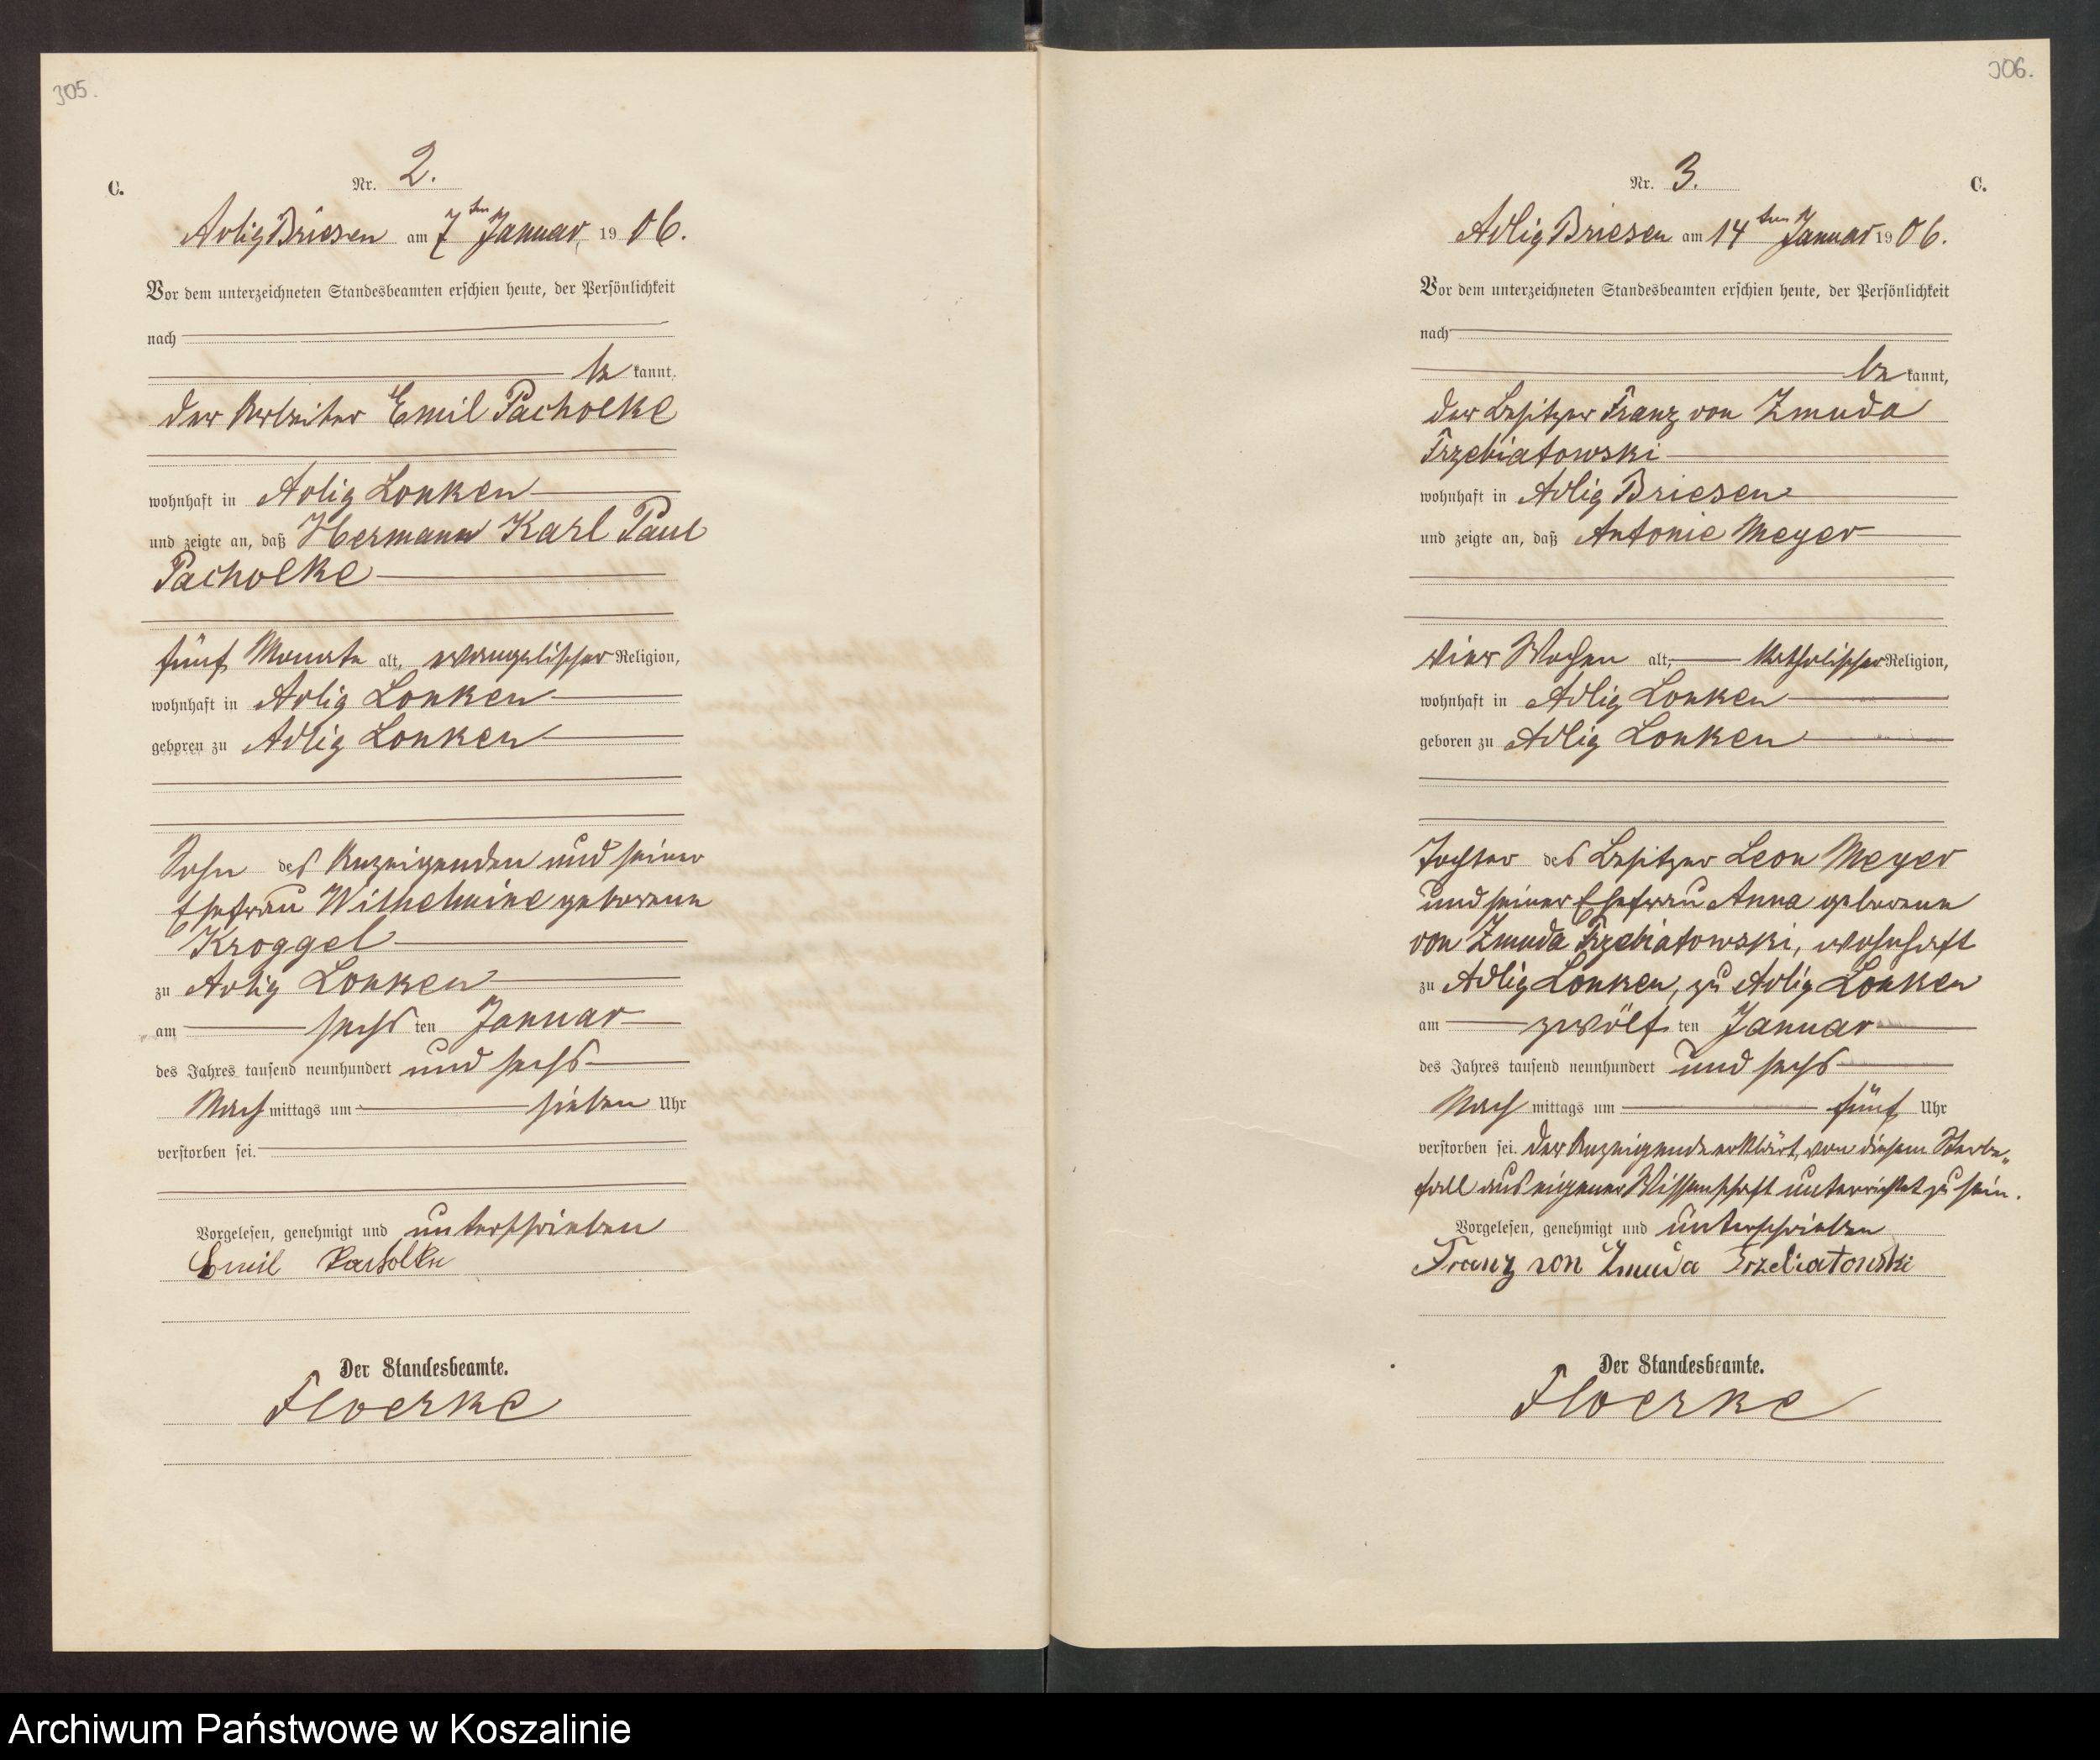 305.
C.
Nr. 2.
Adlig Briesen am 7ten Januar 1906.
Vor dem unterzeichneten Standesbeamten erschien heute, der Persönlichkeit
nach
be kannt,
der Arbeiter Emil Pacholke
wohnhaft in Adlig Lonken
und zeigte an, daß Hermann Karl Paul
Pacholke
fünf Monate alt, evangelischer Religion,
wohnhaft in Adlig Lonken
geboren zu Adlig Lonken
Sohn des Anzeigenden und seiner
Ehefrau Wilhelmine geborene
Kroggel
zu Adlig Lonken
am sechs ten Januar
des Jahres tausend neunhundert und sechs
Nach mittags um sieben Uhr
verstorben sei.
Vorgelesen, genehmigt und unterschrieben
Emil Pacholke
Der Standesbeamte.
Floerke
306.
Nr. 3.
C.
Adlig Briesen am 14ten Januar 1906.
Vor dem unterzeichneten Standesbeamten erschien heute, der Persönlichkeit
nach
be kannt,
der Besitzer Franz von Zmuda
Trzebiatowski
wohnhaft in Adlig Briesen
und zeigte an, daß Antonie Meyer
vier Wochen alt, katholischer Religion,
wohnhaft in Adlig Lonken
geboren zu Adlig Lonken
Tochter des Besitzer Leon Meyer
und seiner Ehefrau Anna geborene
von Zmuda Trzebiatowski, wohnhaft
zu Adlig Lonken, zu Adlig Lonken
am zwölf ten Januar
des Jahres tausend neunhundert und sechs
Nach mittags um fünf Uhr
verstorben sei. Der Anzeigende erklärt, von diesem Sterbe„
fall aus eigener Wissenschaft unterrichtet zu sein.
Vorgelesen, genehmigt und unterschrieben
Franz von Zmuda Trzebiatowski
Der Standesbeamte.
Floerke
Archiwum Państwowe w Koszalinie